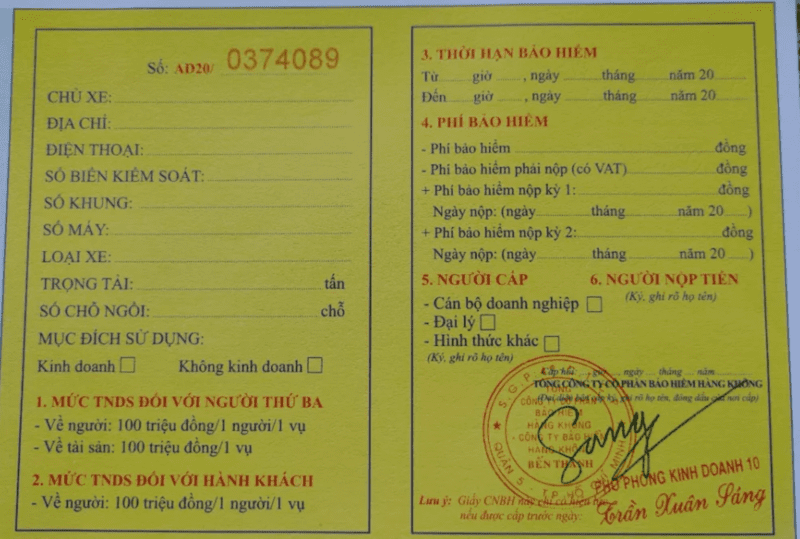 Số: AD20/ 0374089
CHỦ XE:
ĐỊA CHỈ:
ĐIỆN THOẠI:
SỐ BIỂN KIỂM SOÁT:
SỐ KHUNG:
SỐ MÁY:
LOẠI XE:
TRỌNG TẢI: tấn
SỐ CHỖ NGỒI: chỗ
MỤC ĐÍCH SỬ DỤNG:
Kinh doanh □ Không kinh doanh □
1. MỨC TNDS ĐỐI VỚI NGƯỜI THỨ BA
- Về người: 100 triệu đồng/1 người/1 vụ
- Về tài sản: 100 triệu đồng/1 vụ
2. MỨC TNDS ĐỐI VỚI HÀNH KHÁCH
- Về người: 100 triệu đồng/1 người/1 vụ
3. THỜI HẠN BẢO HIỂM
Từ giờ , ngày tháng năm 20
Đến giờ , ngày tháng năm 20
4. PHÍ BẢO HIỂM
- Phí bảo hiểm đồng
- Phí bảo hiểm phải nộp (có VAT) đồng
+ Phí bảo hiểm nộp kỳ 1: đồng
Ngày nộp: (ngày tháng năm 20 )
+ Phí bảo hiểm nộp kỳ 2: đồng
Ngày nộp: (ngày tháng năm 20 )
5. NGƯỜI CẤP 6. NGƯỜI NỘP TIỀN
(Ký, ghi rõ họ tên)
- Cán bộ doanh nghiệp □
- Đại lý □
- Hình thức khác □
(Ký, ghi rõ họ tên)
Cấp hồi: giờ ngày tháng năm
TỔNG CÔNG TY CỔ PHẦN BẢO HIỂM HÀNG KHÔNG
TỔNG
CÔNG TY CỔ PHẦN
BẢO HIỂM
HÀNG KHÔNG
- CÔNG TY BẢO HIỂM
HÀNG KHÔNG
BẾN THÀNH
QUẬN 5 - TP HỒ CHÍ MINH
Sang
PHÓ PHÒNG KINH DOANH 10
Trần Xuân Sáng
Lưu ý: Giấy CNBH này chỉ có hiệu lực
nếu được cấp trước ngày: